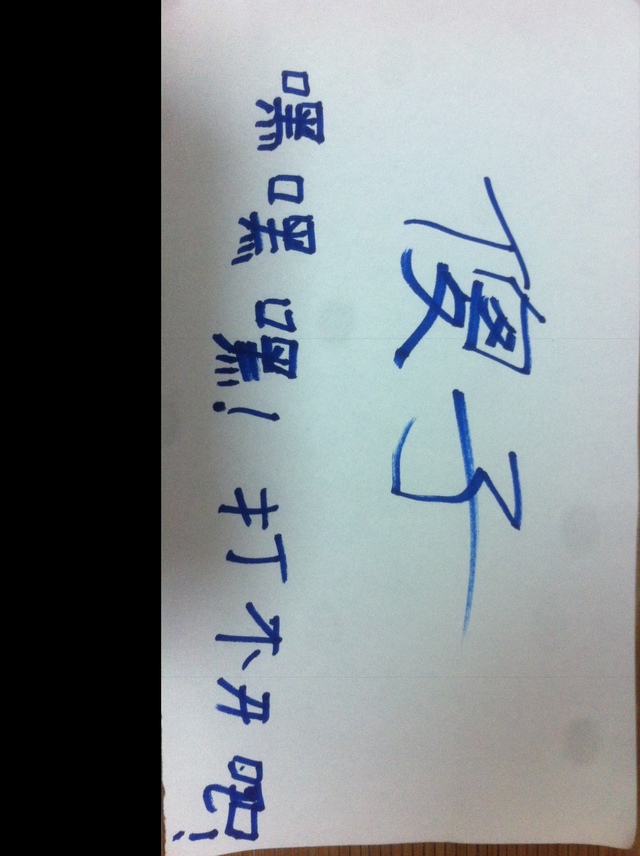 傻子
嘿嘿嘿!打不开吧!